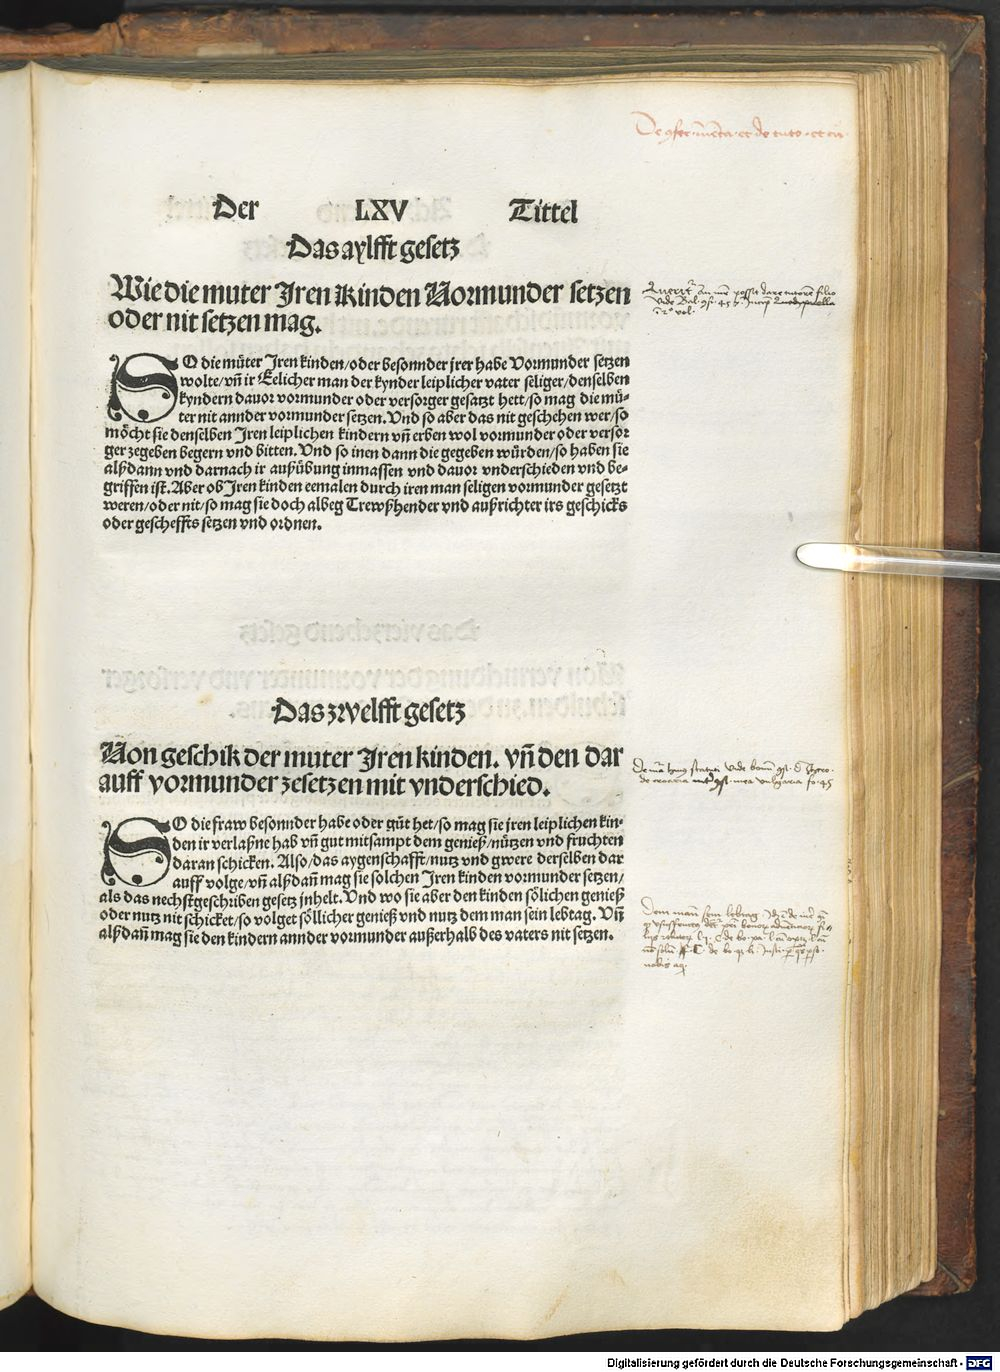 Der LXV Tittel
Das aylfft gesetz
Wie die muter Iren kinden Vormunder setzen
oder nit setzen mag.
SO die müter Iren kinden/oder besonnder jrer habe Vormunder setzen
wolte/vñ ir Eelicher man der kynder leiplicher vater seliger/denselben
kyndern dauor vormunder oder versorger gesatzt hett/so mag die mü-
ter nit annder vormunder setzen. Vnd so aber das nit geschehen wer/so
möcht sie denselben Iren leiplichen kindern vñ erben wol vormunder oder versor
ger zegeben begern vnd bitten. Vnd so inen dann die gegeben würden/so haben sie
alßdann vnd darnach ir außübung inmassen vnd dauor vnderschieden vnd be-
griffen ist. Aber ob Iren kinden eemalen durch iren man seligen vormunder gesetzt
weren/oder nit/so mag sie doch albeg Trewßhender vnd außrichter irs geschicks
oder gescheffts setzen vnd ordnen.
Das zwelfft gesetz
Von geschik der muter Iren kinden. vñ den dar
auff vormunder zesetzen mit vnderschied.
SO die fraw besonnder habe oder güt het/so mag sie jren leiplichen kin-
den ir verlaßne hab vñ gut mitsampt dem genieß/nützen vnd fruchten
daran schicken. Also/das aygenschafft/nutz vnd gwere derselben dar
auff volge/vñ alßdañ mag sie solchen Iren kinden vormunder setzen/
als das nechstgeschriben gesetz jnhelt. Vnd wo sie aber den kinden sölichen genieß
oder nutz nit schicket/so volget söllicher genieß vnd nutz dem man sein lebtag. Vñ
alßdañ mag sie den kindern annder vormunder außerhalb des vaters nit setzen.
Dem mann sein lebtag
Digitalisierung gefördert durch die Deutsche Forschungsgemeinschaft - DFG